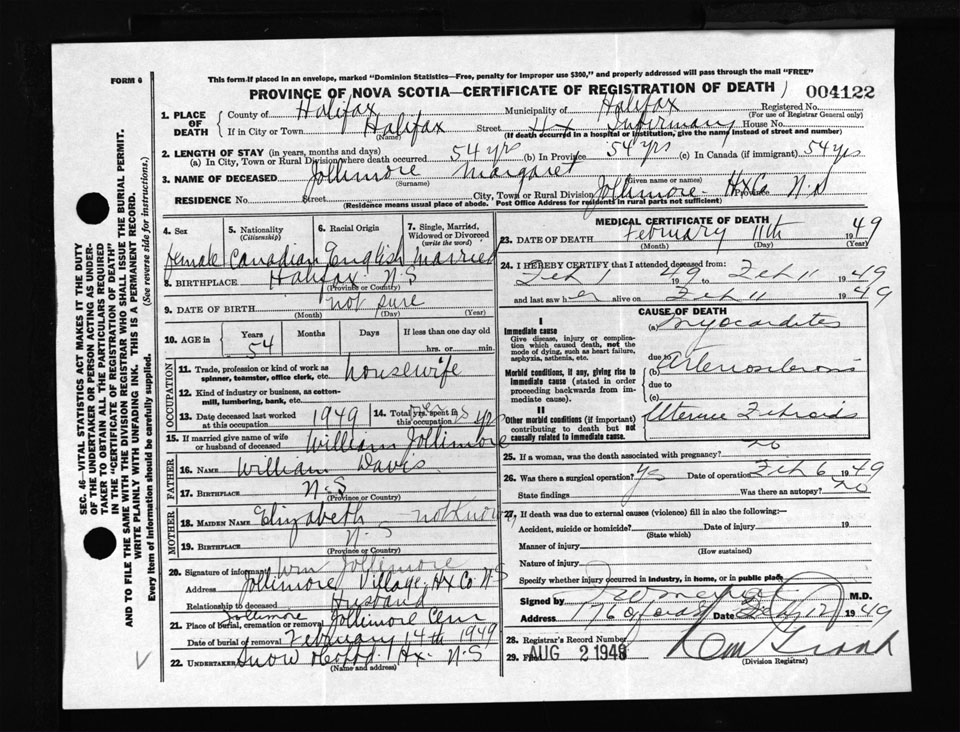 This form if placed in an envelope, marked "Dominion Statistics—Free, penalty for improper use $300," and properly addressed will pass through the mail "FREE"
FORM 6
PROVINCE OF NOVA SCOTIA—CERTIFICATE OF REGISTRATION OF DEATH
004122
1. PLACE OF DEATH
County of Halifax Municipality of Halifax Registered No.
(For use of Registrar General only)
If in City or Town Halifax Street Hx Infirmary House No.
(Name) (If death occurred in a hospital or institution, give the name instead of street and number)
2. LENGTH OF STAY (in years, months and days)
(a) In City, Town or Rural Division where death occurred 54 yrs (b) In Province 54 yrs (c) In Canada (if immigrant) 54 yrs
3. NAME OF DECEASED Jollimore Margaret
(Surname) (Given name or names)
RESIDENCE No. Street City, Town or Rural Division Jollimore Hx Co Province N.S
(Residence means usual place of abode. Post Office Address for residents in rural parts not sufficient)
4. Sex 5. Nationality (Citizenship) 6. Racial Origin 7. Single, Married, Widowed or Divorced (write the word)
Female Canadian English Married
8. BIRTHPLACE Halifax N-S
(Province or Country)
9. DATE OF BIRTH not sure
(Month) (Day) (Year)
10. AGE in Years Months Days If less than one day old
54 hrs. or min.
OCCUPATION
11. Trade, profession or kind of work as spinner, teamster, office clerk, etc. housewife
12. Kind of industry or business, as cotton mill, lumbering, bank, etc.
13. Date deceased last worked at this occupation 1949 14. Total yrs. spent in this occupation yrs
15. If married give name of wife or husband of deceased William Jollimore
FATHER
16. Name William Davis
17. Birthplace N-S
(Province or Country)
MOTHER
18. Maiden Name Elizabeth not Known
19. Birthplace N-S
(Province or Country)
20. Signature of informant Wm Jollimore
Address Jollimore Village, Hx Co. N-S
Relationship to deceased Husband
21. Place of burial, cremation or removal Jollimore Jollimore Cem
Date of burial or removal February 14th 1949
22. Undertaker Snow Hx. N-S
(Name and address)
MEDICAL CERTIFICATE OF DEATH
23. DATE OF DEATH February 11th 1949
(Month) (Day) (Year)
24. I HEREBY CERTIFY that I attended deceased from:
Feb 1 1949 to Feb 11 1949
and last saw her alive on Feb 11 1949
CAUSE OF DEATH
I
Immediate cause
Give disease, injury or complication which caused death, not the mode of dying, such as heart failure, asphyxia, asthenia, etc.
(a) Myocarditis
due to
Morbid conditions, if any, giving rise to immediate cause (stated in order proceeding backwards from immediate cause).
(b) Arteriosclerosis
due to
(c)
II
Other morbid conditions (if important) contributing to death but not causally related to immediate cause.
Uterine Fibroids
25. If a woman, was the death associated with pregnancy? no
26. Was there a surgical operation? Yes Date of operation Feb 6 1949
State findings Was there an autopsy? No
27. If death was due to external causes (violence) fill in also the following:—
Accident, suicide or homicide? Date of injury 19
(State which)
Manner of injury
(How sustained)
Nature of injury
Specify whether injury occurred in industry, in home, or in public place
Signed by M.D.
Address 176 Oxford St Date Feb 12 1949
28. Registrar's Record Number
29. Filed AUG 2 1949
(Division Registrar)
SEC. 46—VITAL STATISTICS ACT MAKES IT THE DUTY
OF THE UNDERTAKER OR PERSON ACTING AS UNDERTAKER
TO OBTAIN ALL THE PARTICULARS REQUIRED
IN THE "CERTIFICATE OF REGISTRATION OF DEATH"
AND TO FILE THE SAME WITH THE DIVISION REGISTRAR WHO SHALL ISSUE THE BURIAL PERMIT.
WRITE PLAINLY WITH UNFADING INK. THIS IS A PERMANENT RECORD.
Every item of information should be carefully supplied. (See reverse side for instructions.)